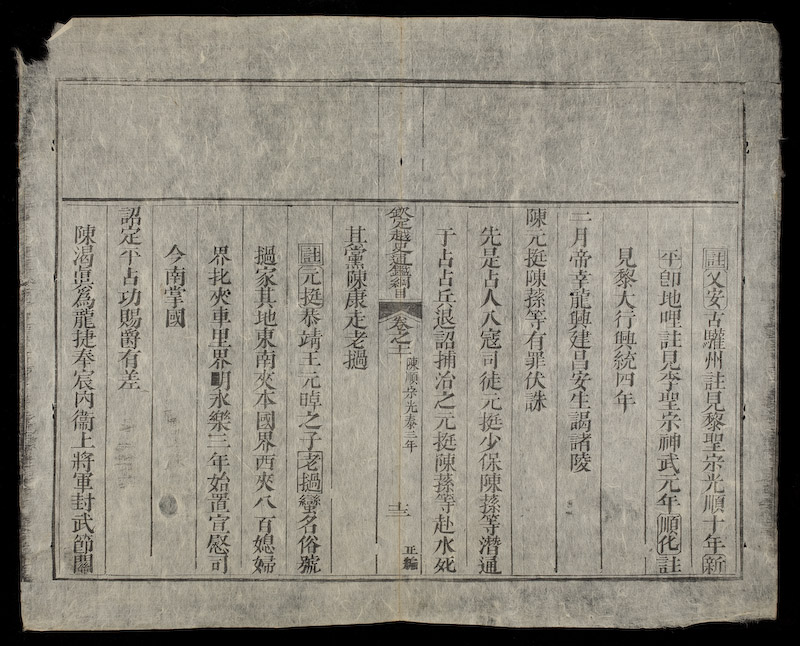 註乂安古驩州註見黎聖宗光順十年新
平卽地哩註見李聖宗神武元年順化註
見黎大行興統四年
二月帝幸龍興建昌安生謁諸陵
陳元挺陳蓀等有罪伏誅
先是占人入寇司徒元挺少保陳蓀等潛通
于占占兵退詔捕治之元挺陳蓀等赴水死
欽定越史通鑑綱目 卷之十一 陳順宗光泰三年 十三 正編
其黨陳康走老撾
註元挺恭靖王元晫之子老撾蠻名俗號
撾家其地東南夾本國界西夾八百媳婦
界北夾車里界明永樂三年始置宣慰司
今南掌國
詔定平占功賜爵有差
陳渴眞爲龍捷奉宸內衞上將軍封武節關